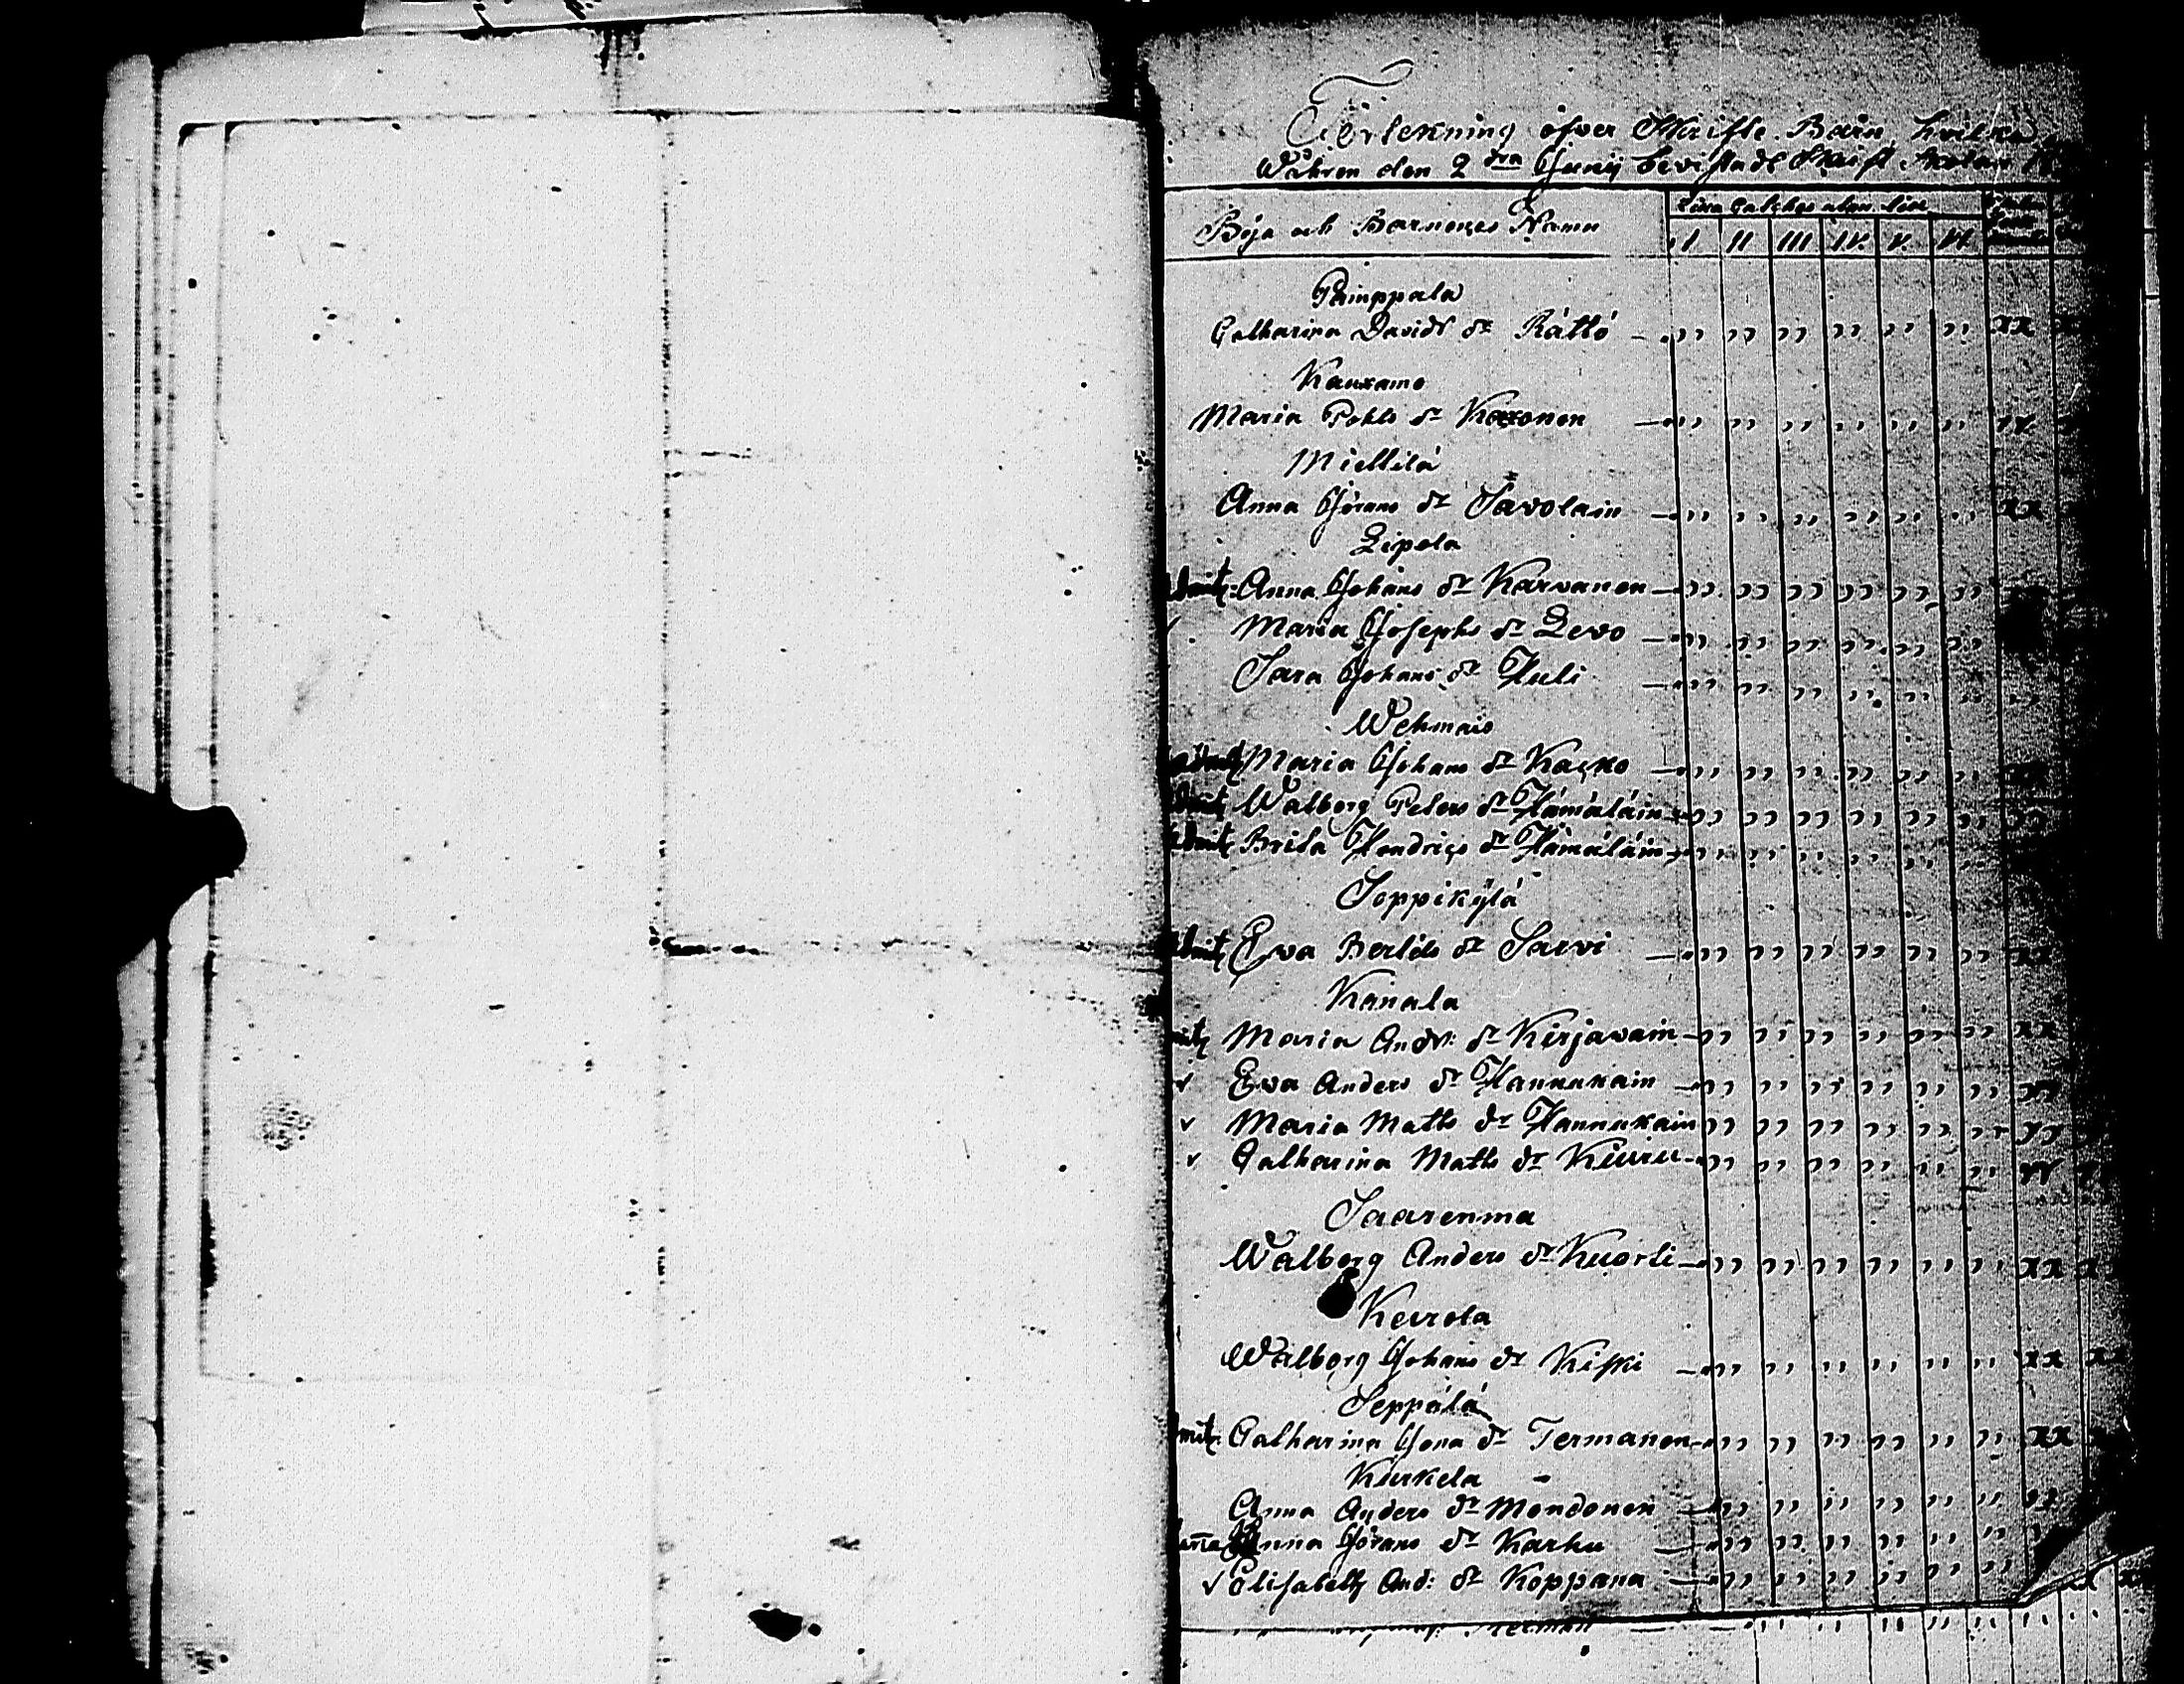 Förtekning öfver Skrifte Barn hvilka
Wåhren den 2dra Junij bevistadt Skrift Skolan
Byja och Barnenges Namn
Lära Catches utan
I II III IV. V. VI
Pämppala
Catharina Davids dr Rättö - ,, ,, ,, ,, ,, ,, xx
Kauxamo
Maria Pohls dr Kaxonen - ,, ,, ,, ,, ,, ,,
Miettilä
Anna Jörans dr Savolain - ,, ,, ,, ,, ,, ,, xx
Zipola
Anna Johans dr Karvanen - ,, ,, ,, ,, ,, ,,
Maria Josephs dr Zevo - ,, ,, ,, ,, ,, ,,
Sara Johans dr Huli - ,, ,, ,, ,, ,, ,,
Wehmais
Maria Johans dr Kaçko - ,, ,, ,, ,, ,, ,,
Walborg Peters dr Hämäläin - ,, ,, ,, ,, ,, ,,
Brita Hendriçs dr Hämäläin - ,, ,, ,, ,, ,, ,,
Soppikÿlä
Eva Bertils dr Sarvi - ,, ,, ,, ,, ,, ,, xx
Känala
Maria And: dr Kirjavain - ,, ,, ,, ,, ,, ,, xx
v Eva Anders dr Hannukain - ,, ,, ,, ,, ,, ,,
v Maria Matts dr Hannukain ,, ,, ,, ,, ,, ,,
v Catharina Matts dr Kiuru - ,, ,, ,, ,, ,, ,,
Saarenma
Walborg Anders dr Kuorti - ,, ,, ,, ,, ,, ,, xx
Keurola
Walborg Johans dr Kiski - ,, ,, ,, ,, ,, ,, xx
Seppälä
Catharina Jona dr Termanen - ,, ,, ,, ,, ,, ,, xx
Kurkela
Anna Anders dr Mondonen - ,, ,, ,, ,, ,, ,,
Anna Jörans dr Karhu - ,, ,, ,, ,, ,, ,,
v Elisabeth And: dr Koppana - ,, ,, ,, ,, ,, ,,